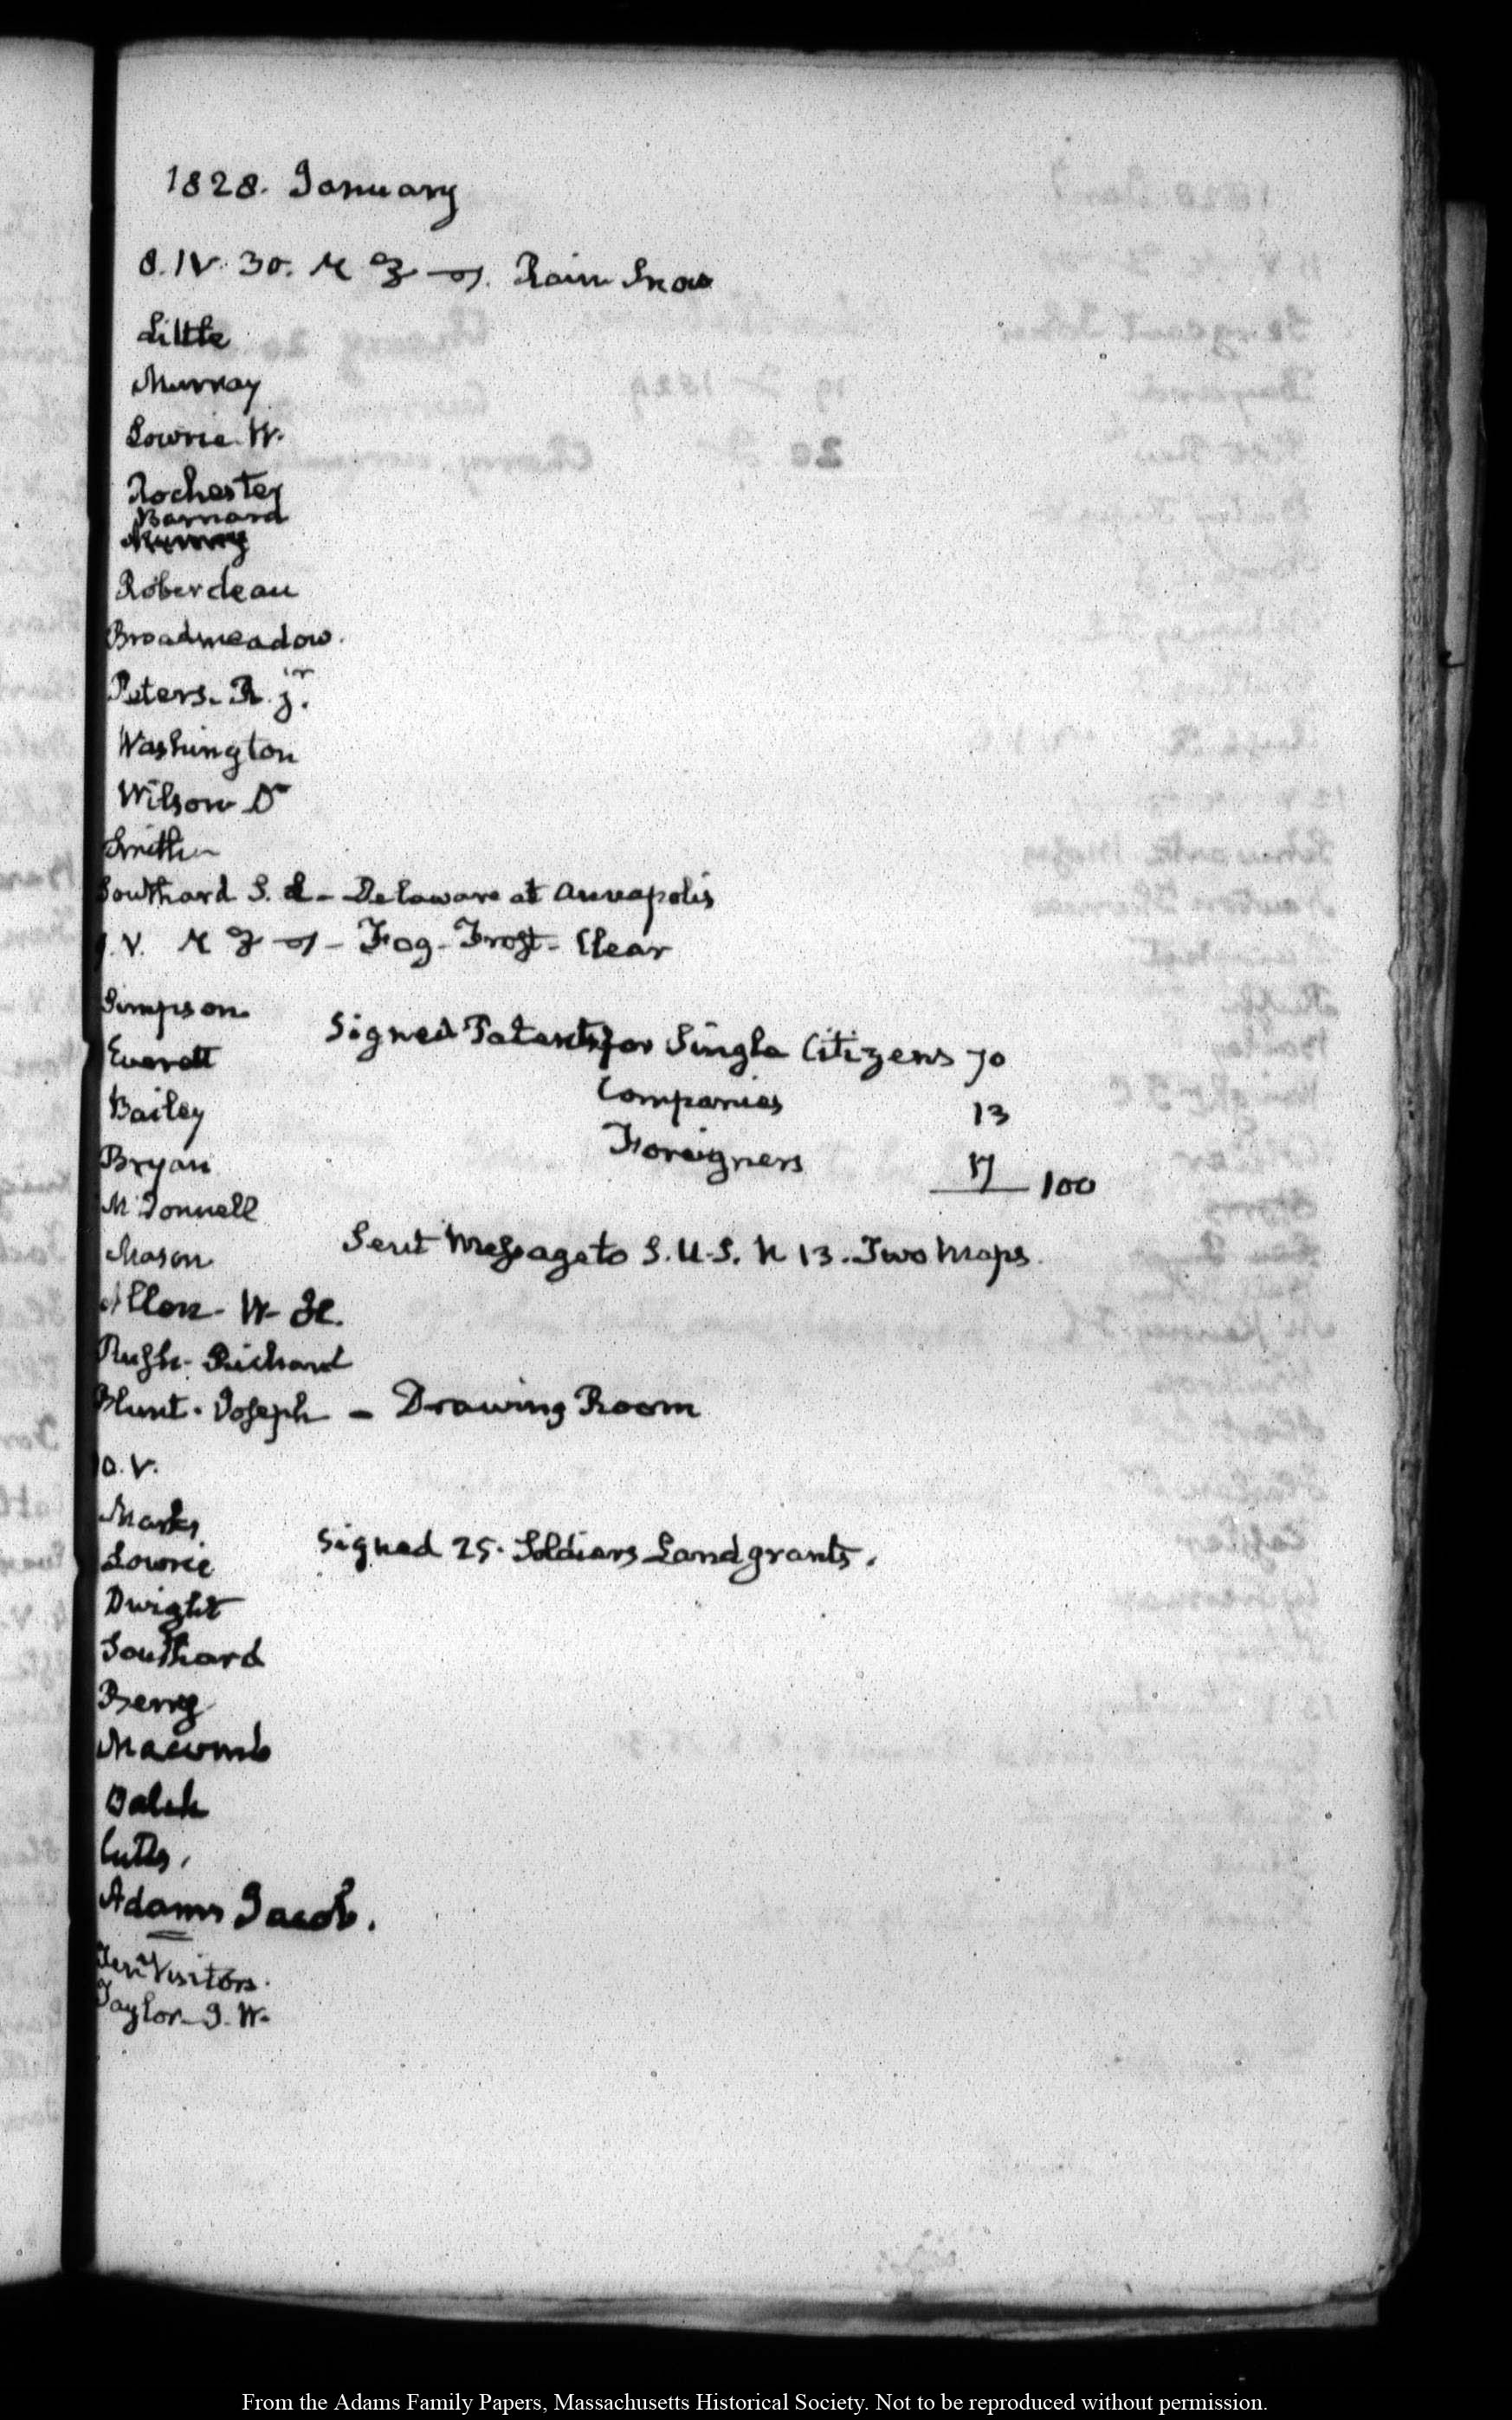 1828. January
8. IV. 30. Rain Snow
Little
Murray
Lowrie W.
Rochester
Barnard
Roberdeau
Broadmeadow.
Peters. R. jr.
Washington
Wilson Dr
Smith
Southard S. L - Delaware at Annapolis
V. - Fog - Frost - Clear
Simpson
Everett
Signed Patents for Single Citizens 70
Bailey
Companies 13
Bryan
Foreigners 17 100
McDonnell
Mason
Sent Message to S. U. S. N 13. Two Maps.
Allen - W.
Rush - Richard
Blunt. Joseph - Drawing Room
10. V.
Marks
Lowrie
Signed 25. Soldiers Land grants.
Dwight
Southard
Macomb
Balch
Cutts.
Adams Jacob.
Ten Visitors.
Taylor - J. W.
From the Adams Family Papers, Massachusetts Historical Society. Not to be reproduced without permission.